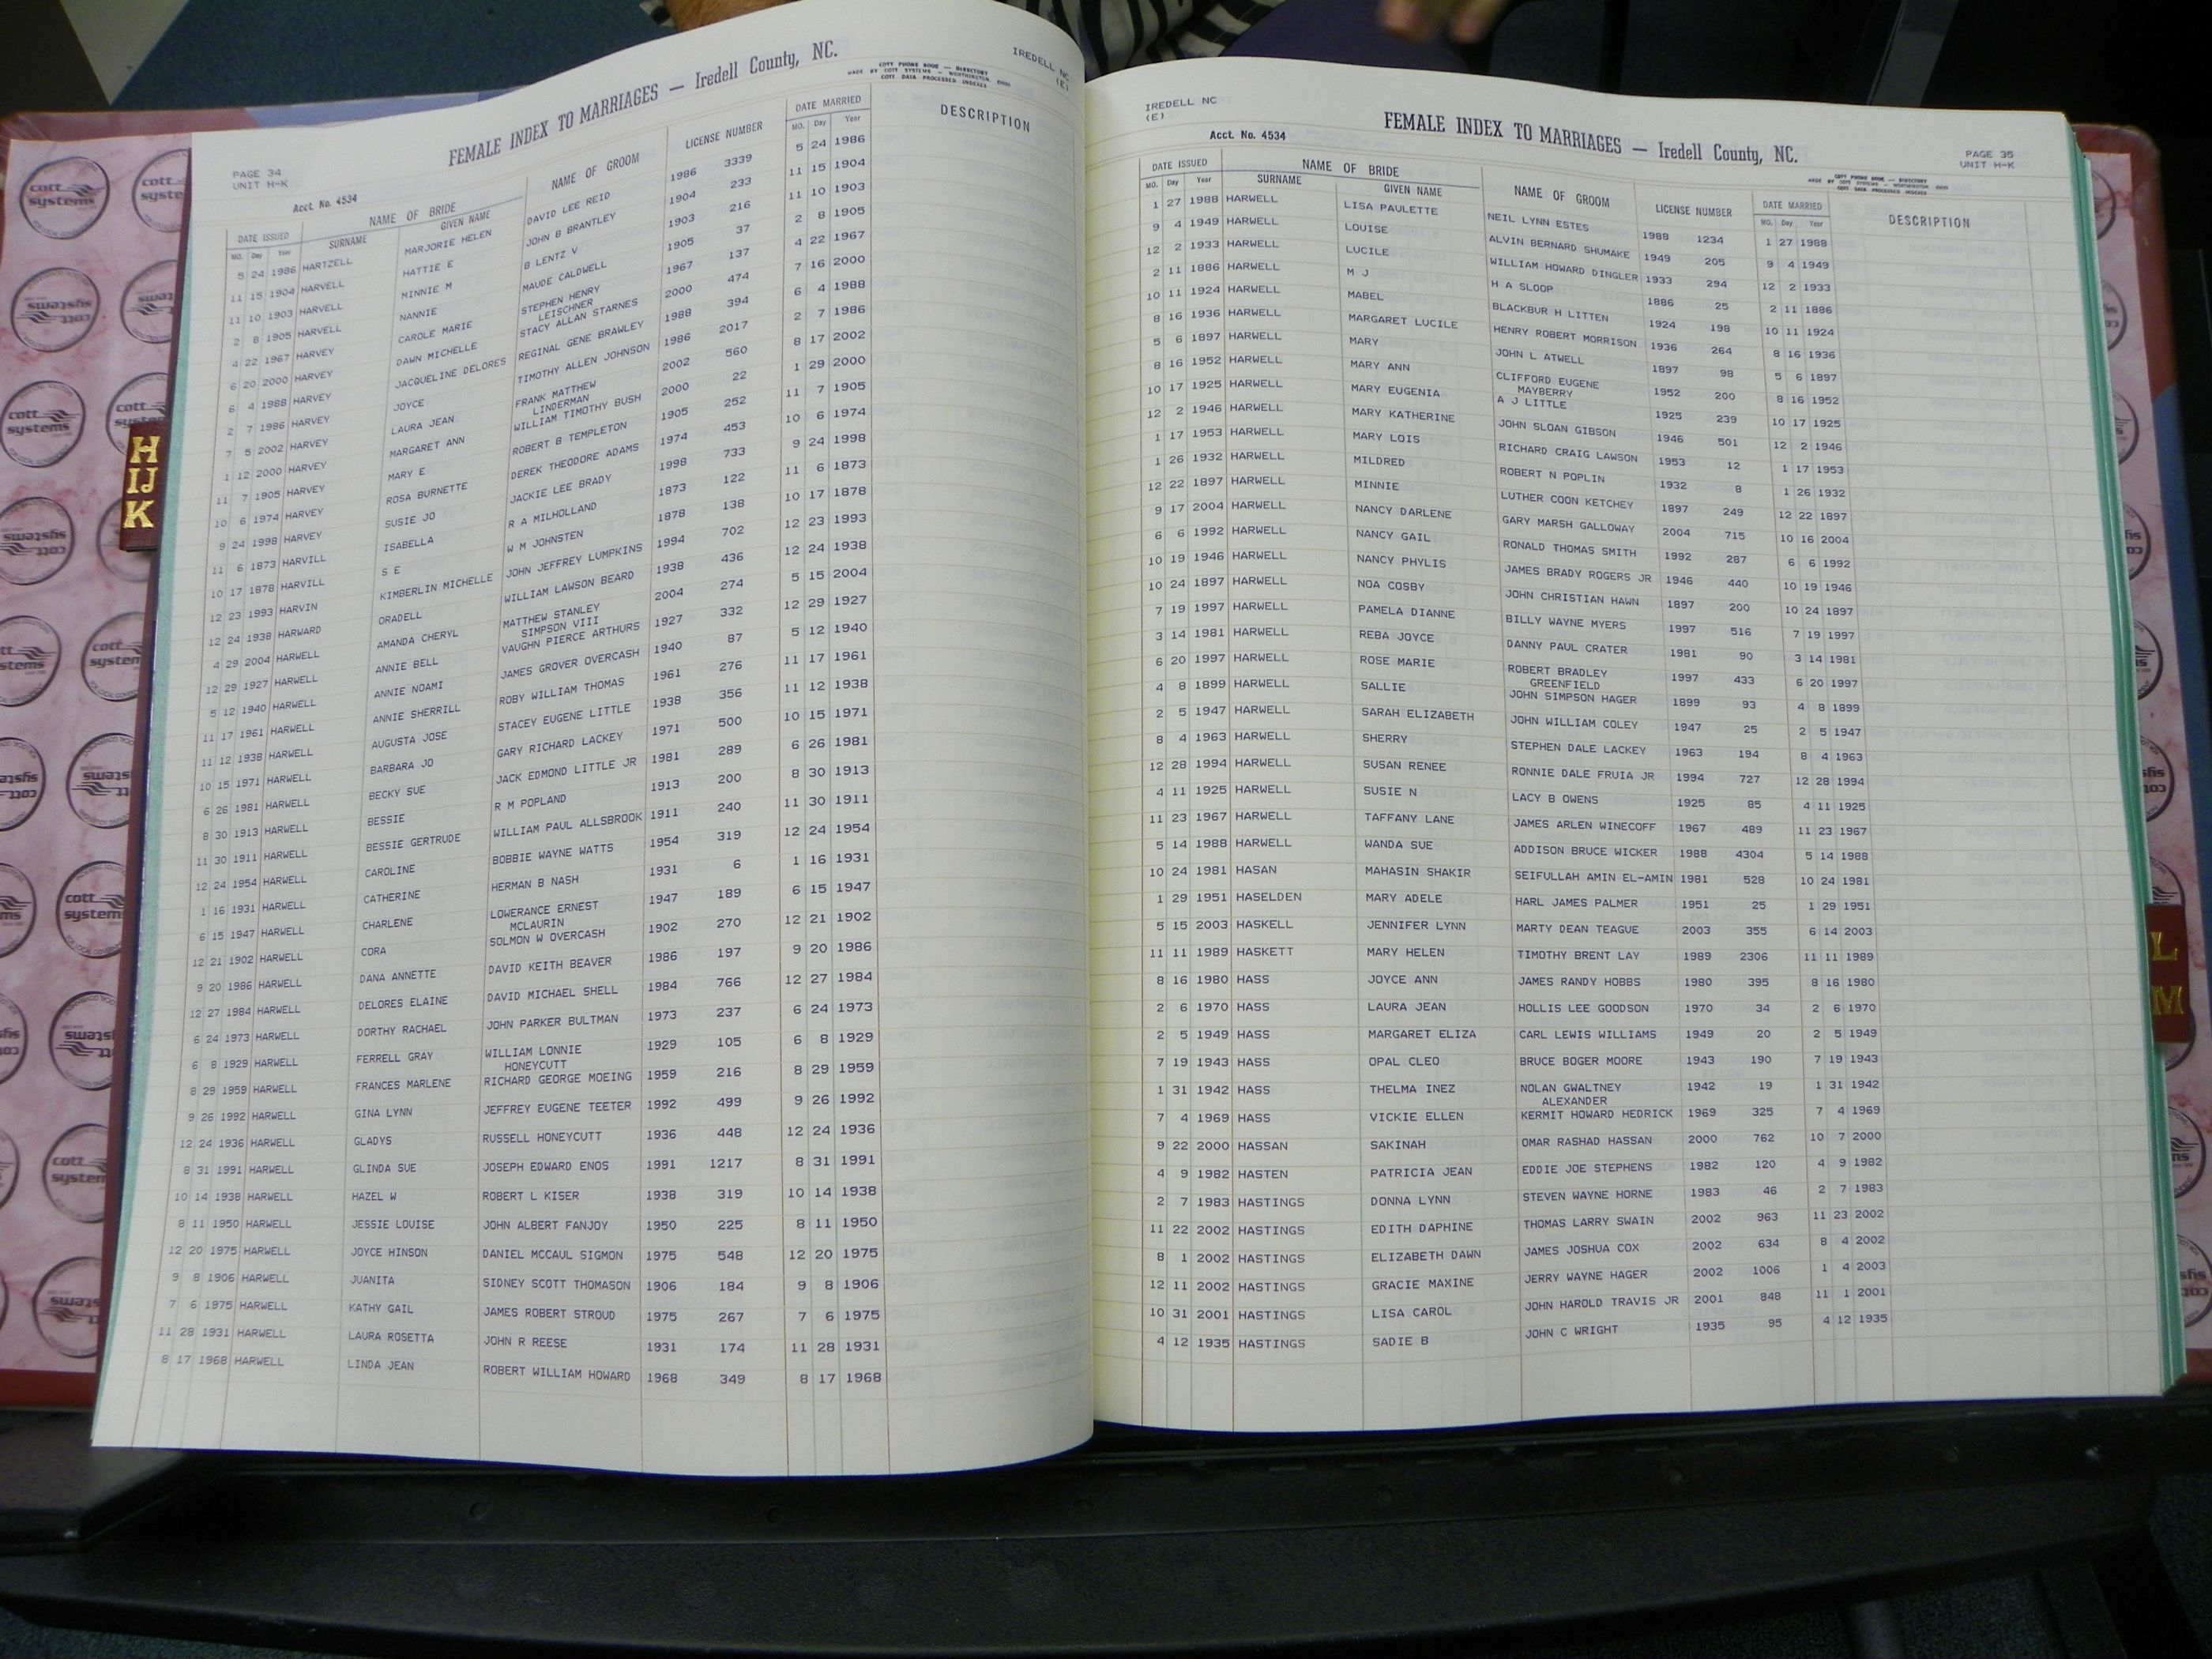 IREDELL NC
(E)
FEMALE INDEX TO MARRIAGES — Iredell County, NC.
COTT PHONE BOOK — DIRECTORY
MADE BY COTT SYSTEMS — WORTHINGTON, OHIO
COTT DATA PROCESSED INDEXES
PAGE 34
UNIT H-K
Acct. No. 4534
DATE ISSUED NAME OF BRIDE NAME OF GROOM LICENSE NUMBER DATE MARRIED DESCRIPTION
MO. Day Year SURNAME GIVEN NAME MO. Day Year
5 24 1986 HARTZELL MARJORIE HELEN DAVID LEE REID 1986 3339 5 24 1986
11 15 1904 HARVELL HATTIE E JOHN B BRANTLEY 1904 233 11 15 1904
11 10 1903 HARVELL MINNIE M B LENTZ V 1903 216 11 10 1903
2 8 1905 HARVELL NANNIE MAUDE CALDWELL 1905 37 2 8 1905
4 22 1967 HARVEY CAROLE MARIE STEPHEN HENRY 1967 137 4 22 1967
LEISCHNER
6 20 2000 HARVEY DAWN MICHELLE STACY ALLAN STARNES 2000 474 7 16 2000
6 4 1988 HARVEY JACQUELINE DELORES REGINAL GENE BRAWLEY 1988 394 6 4 1988
2 7 1986 HARVEY JOYCE TIMOTHY ALLEN JOHNSON 1986 2017 2 7 1986
7 5 2002 HARVEY LAURA JEAN FRANK MATTHEW 2002 560 8 17 2002
LINDERMAN
1 12 2000 HARVEY MARGARET ANN WILLIAM TIMOTHY BUSH 2000 22 1 29 2000
11 7 1905 HARVEY MARY E ROBERT B TEMPLETON 1905 252 11 7 1905
10 6 1974 HARVEY ROSA BURNETTE DEREK THEODORE ADAMS 1974 453 10 6 1974
9 24 1998 HARVEY SUSIE JO JACKIE LEE BRADY 1998 733 9 24 1998
11 6 1873 HARVILL ISABELLA R A MILHOLLAND 1873 122 11 6 1873
10 17 1878 HARVILL S E W M JOHNSTEN 1878 138 10 17 1878
12 23 1993 HARVIN KIMBERLIN MICHELLE JOHN JEFFREY LUMPKINS 1994 702 12 23 1993
12 24 1938 HARWARD ORADELL WILLIAM LAWSON BEARD 1938 436 12 24 1938
4 29 2004 HARWELL AMANDA CHERYL MATTHEW STANLEY 2004 274 5 15 2004
SIMPSON VIII
12 29 1927 HARWELL ANNIE BELL VAUGHN PIERCE ARTHURS 1927 332 12 29 1927
5 12 1940 HARWELL ANNIE NOAMI JAMES GROVER OVERCASH 1940 87 5 12 1940
11 17 1961 HARWELL ANNIE SHERRILL ROBY WILLIAM THOMAS 1961 276 11 17 1961
11 12 1938 HARWELL AUGUSTA JOSE STACEY EUGENE LITTLE 1938 356 11 12 1938
10 15 1971 HARWELL BARBARA JO GARY RICHARD LACKEY 1971 500 10 15 1971
6 26 1981 HARWELL BECKY SUE JACK EDMOND LITTLE JR 1981 289 6 26 1981
8 30 1913 HARWELL BESSIE R M POPLAND 1913 200 8 30 1913
11 30 1911 HARWELL BESSIE GERTRUDE WILLIAM PAUL ALLSBROOK 1911 240 11 30 1911
12 24 1954 HARWELL CAROLINE BOBBIE WAYNE WATTS 1954 319 12 24 1954
1 16 1931 HARWELL CATHERINE HERMAN B NASH 1931 6 1 16 1931
6 15 1947 HARWELL CHARLENE LOWERANCE ERNEST 1947 189 6 15 1947
MCLAURIN
12 21 1902 HARWELL CORA SOLMON W OVERCASH 1902 270 12 21 1902
9 20 1986 HARWELL DANA ANNETTE DAVID KEITH BEAVER 1986 197 9 20 1986
12 27 1984 HARWELL DELORES ELAINE DAVID MICHAEL SHELL 1984 766 12 27 1984
6 24 1973 HARWELL DORTHY RACHAEL JOHN PARKER BULTMAN 1973 237 6 24 1973
6 8 1929 HARWELL FERRELL GRAY WILLIAM LONNIE 1929 105 6 8 1929
HONEYCUTT
8 29 1959 HARWELL FRANCES MARLENE RICHARD GEORGE MOEING 1959 216 8 29 1959
9 26 1992 HARWELL GINA LYNN JEFFREY EUGENE TEETER 1992 499 9 26 1992
12 24 1936 HARWELL GLADYS RUSSELL HONEYCUTT 1936 448 12 24 1936
8 31 1991 HARWELL GLINDA SUE JOSEPH EDWARD ENOS 1991 1217 8 31 1991
10 14 1938 HARWELL HAZEL W ROBERT L KISER 1938 319 10 14 1938
8 11 1950 HARWELL JESSIE LOUISE JOHN ALBERT FANJOY 1950 225 8 11 1950
12 20 1975 HARWELL JOYCE HINSON DANIEL MCCAUL SIGMON 1975 548 12 20 1975
9 8 1906 HARWELL JUANITA SIDNEY SCOTT THOMASON 1906 184 9 8 1906
7 6 1975 HARWELL KATHY GAIL JAMES ROBERT STROUD 1975 267 7 6 1975
11 28 1931 HARWELL LAURA ROSETTA JOHN R REESE 1931 174 11 28 1931
8 17 1968 HARWELL LINDA JEAN ROBERT WILLIAM HOWARD 1968 349 8 17 1968
H
IJ
K
cott
systems
IREDELL NC
(E)
Acct. No. 4534
FEMALE INDEX TO MARRIAGES — Iredell County, NC.
PAGE 35
UNIT H-K
COTT PHONE BOOK — DIRECTORY
MADE BY COTT SYSTEMS — WORTHINGTON, OHIO
COTT DATA PROCESSED INDEXES
DATE ISSUED NAME OF BRIDE NAME OF GROOM LICENSE NUMBER DATE MARRIED DESCRIPTION
MO. Day Year SURNAME GIVEN NAME MO. Day Year
1 27 1988 HARWELL LISA PAULETTE NEIL LYNN ESTES 1988 1234 1 27 1988
9 4 1949 HARWELL LOUISE ALVIN BERNARD SHUMAKE 1949 205 9 4 1949
12 2 1933 HARWELL LUCILE WILLIAM HOWARD DINGLER 1933 294 12 2 1933
2 11 1886 HARWELL M J H A SLOOP 1886 25 2 11 1886
10 11 1924 HARWELL MABEL BLACKBUR H LITTEN 1924 198 10 11 1924
8 16 1936 HARWELL MARGARET LUCILE HENRY ROBERT MORRISON 1936 264 8 16 1936
5 6 1897 HARWELL MARY JOHN L ATWELL 1897 98 5 6 1897
8 16 1952 HARWELL MARY ANN CLIFFORD EUGENE 1952 200 8 16 1952
MAYBERRY
10 17 1925 HARWELL MARY EUGENIA A J LITTLE 1925 239 10 17 1925
12 2 1946 HARWELL MARY KATHERINE JOHN SLOAN GIBSON 1946 501 12 2 1946
1 17 1953 HARWELL MARY LOIS RICHARD CRAIG LAWSON 1953 12 1 17 1953
1 26 1932 HARWELL MILDRED ROBERT N POPLIN 1932 8 1 26 1932
12 22 1897 HARWELL MINNIE LUTHER COON KETCHEY 1897 249 12 22 1897
9 17 2004 HARWELL NANCY DARLENE GARY MARSH GALLOWAY 2004 715 10 16 2004
6 6 1992 HARWELL NANCY GAIL RONALD THOMAS SMITH 1992 287 6 6 1992
10 19 1946 HARWELL NANCY PHYLIS JAMES BRADY ROGERS JR 1946 440 10 19 1946
10 24 1897 HARWELL NOA COSBY JOHN CHRISTIAN HAWN 1897 200 10 24 1897
7 19 1997 HARWELL PAMELA DIANNE BILLY WAYNE MYERS 1997 516 7 19 1997
3 14 1981 HARWELL REBA JOYCE DANNY PAUL CRATER 1981 90 3 14 1981
6 20 1997 HARWELL ROSE MARIE ROBERT BRADLEY 1997 433 6 20 1997
GREENFIELD
4 8 1899 HARWELL SALLIE JOHN SIMPSON HAGER 1899 93 4 8 1899
2 5 1947 HARWELL SARAH ELIZABETH JOHN WILLIAM COLEY 1947 25 2 5 1947
8 4 1963 HARWELL SHERRY STEPHEN DALE LACKEY 1963 194 8 4 1963
12 28 1994 HARWELL SUSAN RENEE RONNIE DALE FRUIA JR 1994 727 12 28 1994
4 11 1925 HARWELL SUSIE N LACY B OWENS 1925 85 4 11 1925
11 23 1967 HARWELL TAFFANY LANE JAMES ARLEN WINECOFF 1967 489 11 23 1967
5 14 1988 HARWELL WANDA SUE ADDISON BRUCE WICKER 1988 4304 5 14 1988
10 24 1981 HASAN MAHASIN SHAKIR SEIFULLAH AMIN EL-AMIN 1981 528 10 24 1981
1 29 1951 HASELDEN MARY ADELE HARL JAMES PALMER 1951 25 1 29 1951
5 15 2003 HASKELL JENNIFER LYNN MARTY DEAN TEAGUE 2003 355 6 14 2003
11 11 1989 HASKETT MARY HELEN TIMOTHY BRENT LAY 1989 2306 11 11 1989
8 16 1980 HASS JOYCE ANN JAMES RANDY HOBBS 1980 395 8 16 1980
2 6 1970 HASS LAURA JEAN HOLLIS LEE GOODSON 1970 34 2 6 1970
2 5 1949 HASS MARGARET ELIZA CARL LEWIS WILLIAMS 1949 20 2 5 1949
7 19 1943 HASS OPAL CLEO BRUCE BOGER MOORE 1943 190 7 19 1943
1 31 1942 HASS THELMA INEZ NOLAN GWALTNEY 1942 19 1 31 1942
ALEXANDER
7 4 1969 HASS VICKIE ELLEN KERMIT HOWARD HEDRICK 1969 325 7 4 1969
9 22 2000 HASSAN SAKINAH OMAR RASHAD HASSAN 2000 762 10 7 2000
4 9 1982 HASTEN PATRICIA JEAN EDDIE JOE STEPHENS 1982 120 4 9 1982
2 7 1983 HASTINGS DONNA LYNN STEVEN WAYNE HORNE 1983 46 2 7 1983
11 22 2002 HASTINGS EDITH DAPHINE THOMAS LARRY SWAIN 2002 963 11 23 2002
8 1 2002 HASTINGS ELIZABETH DAWN JAMES JOSHUA COX 2002 634 8 4 2002
12 11 2002 HASTINGS GRACIE MAXINE JERRY WAYNE HAGER 2002 1006 1 4 2003
10 31 2001 HASTINGS LISA CAROL JOHN HAROLD TRAVIS JR 2001 848 11 1 2001
4 12 1935 HASTINGS SADIE B JOHN C WRIGHT 1935 95 4 12 1935
L
M